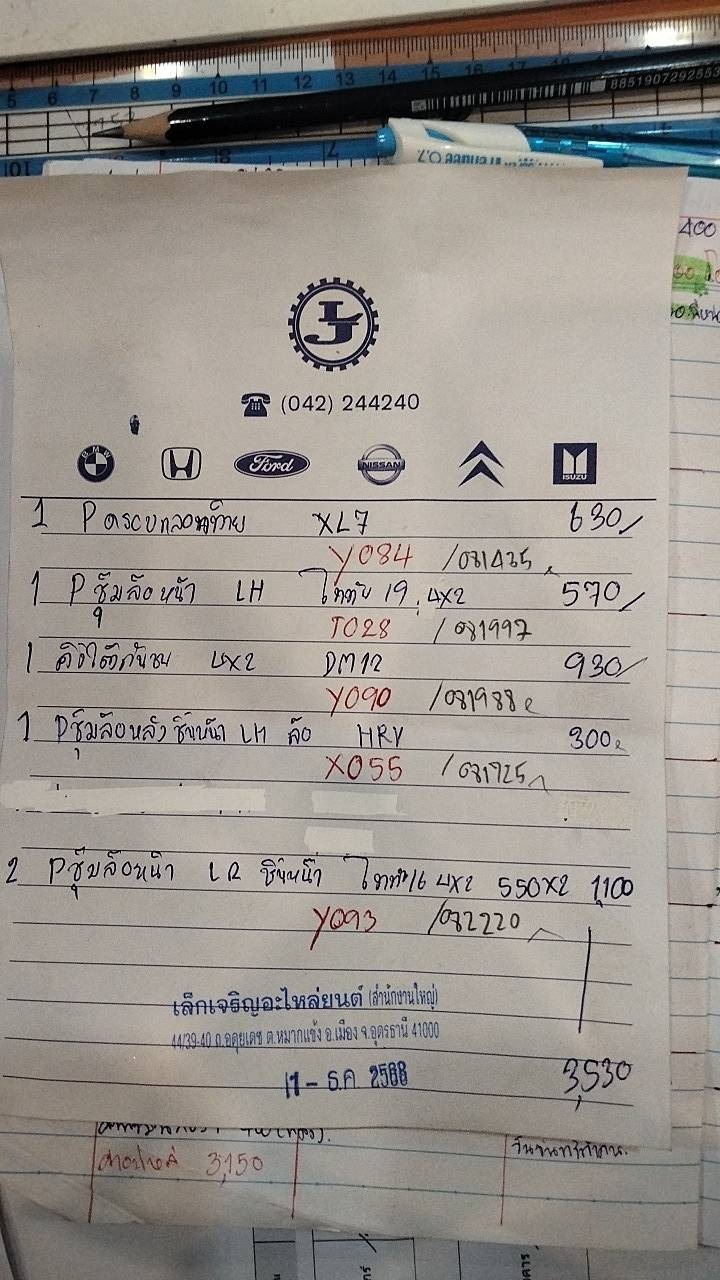 5 6 7 8 9 10 11 12 13 14 15 16 17
885190729255
400
LJ
(042) 244240
BMW H Ford NISSAN ISUZU
1 P ครอบกลอนท้าย XL7 630
Y084 /081435
1 P ซุ้มล้อหน้า LH ไททัน 19 4X2 570
TO28 /081997
1 คิ้วใต้กันชน 4X2 DM12 930
Y090 /081988
1 P ซุ้มล้อหลัง ชิ้นหน้า LH ล้อ HRV 300
X055 /081725
2 P ซุ้มล้อหน้า LR ชิ้นหน้า ไททัน 16 4X2 550X2 1,100
Y093 /082220
เล็กเจริญอะไหล่ยนต์ (สำนักงานใหญ่)
44/39-40 ถ.อดุยเดช ต.หมากแข้ง อ.เมือง จ.อุดรธานี 41000
11 - ธ.ค 2568
3,530
3,150